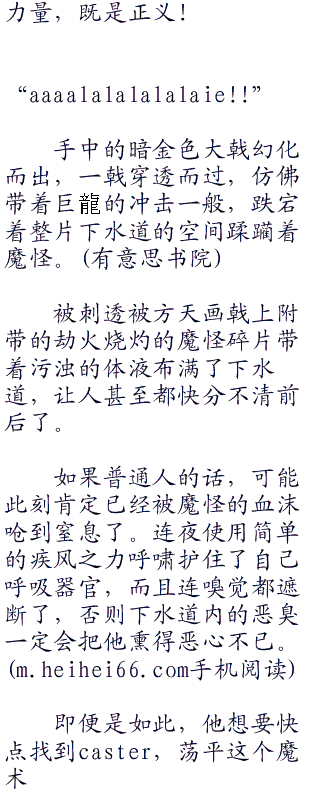 力量，既是正义！
“aaaalalalalalaie!!”
手中的暗金色大戟幻化
而出，一戟穿透而过，仿佛
带着巨龍的冲击一般，跌宕
着整片下水道的空间蹂躏着
魔怪。(有意思书院)
被刺透被方天画戟上附
带的劫火烧灼的魔怪碎片带
着污浊的体液布满了下水
道，让人甚至都快分不清前
后了。
如果普通人的话，可能
此刻肯定已经被魔怪的血沫
呛到窒息了。连夜使用简单
的疾风之力呼啸护住了自己
呼吸器官，而且连嗅觉都遮
断了，否则下水道内的恶臭
一定会把他熏得恶心不已。
(m.heihei66.com手机阅读)
即便是如此，他想要快
点找到caster，荡平这个魔
术